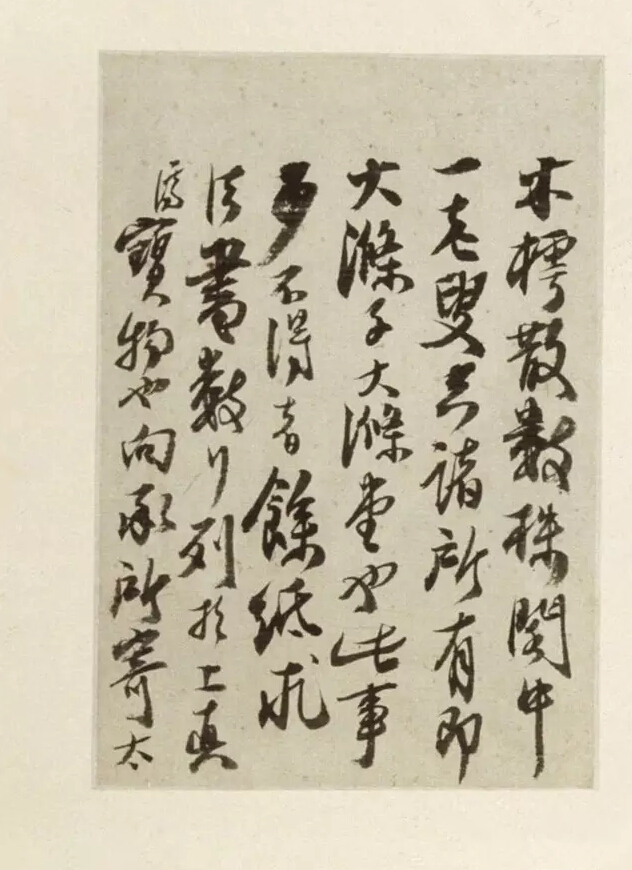 木樗散數株閣中
一老叟空諸所有即
大滌子大滌堂也此事
不得者餘紙求
法書數行列於上真
濟寶物也向承所寄太